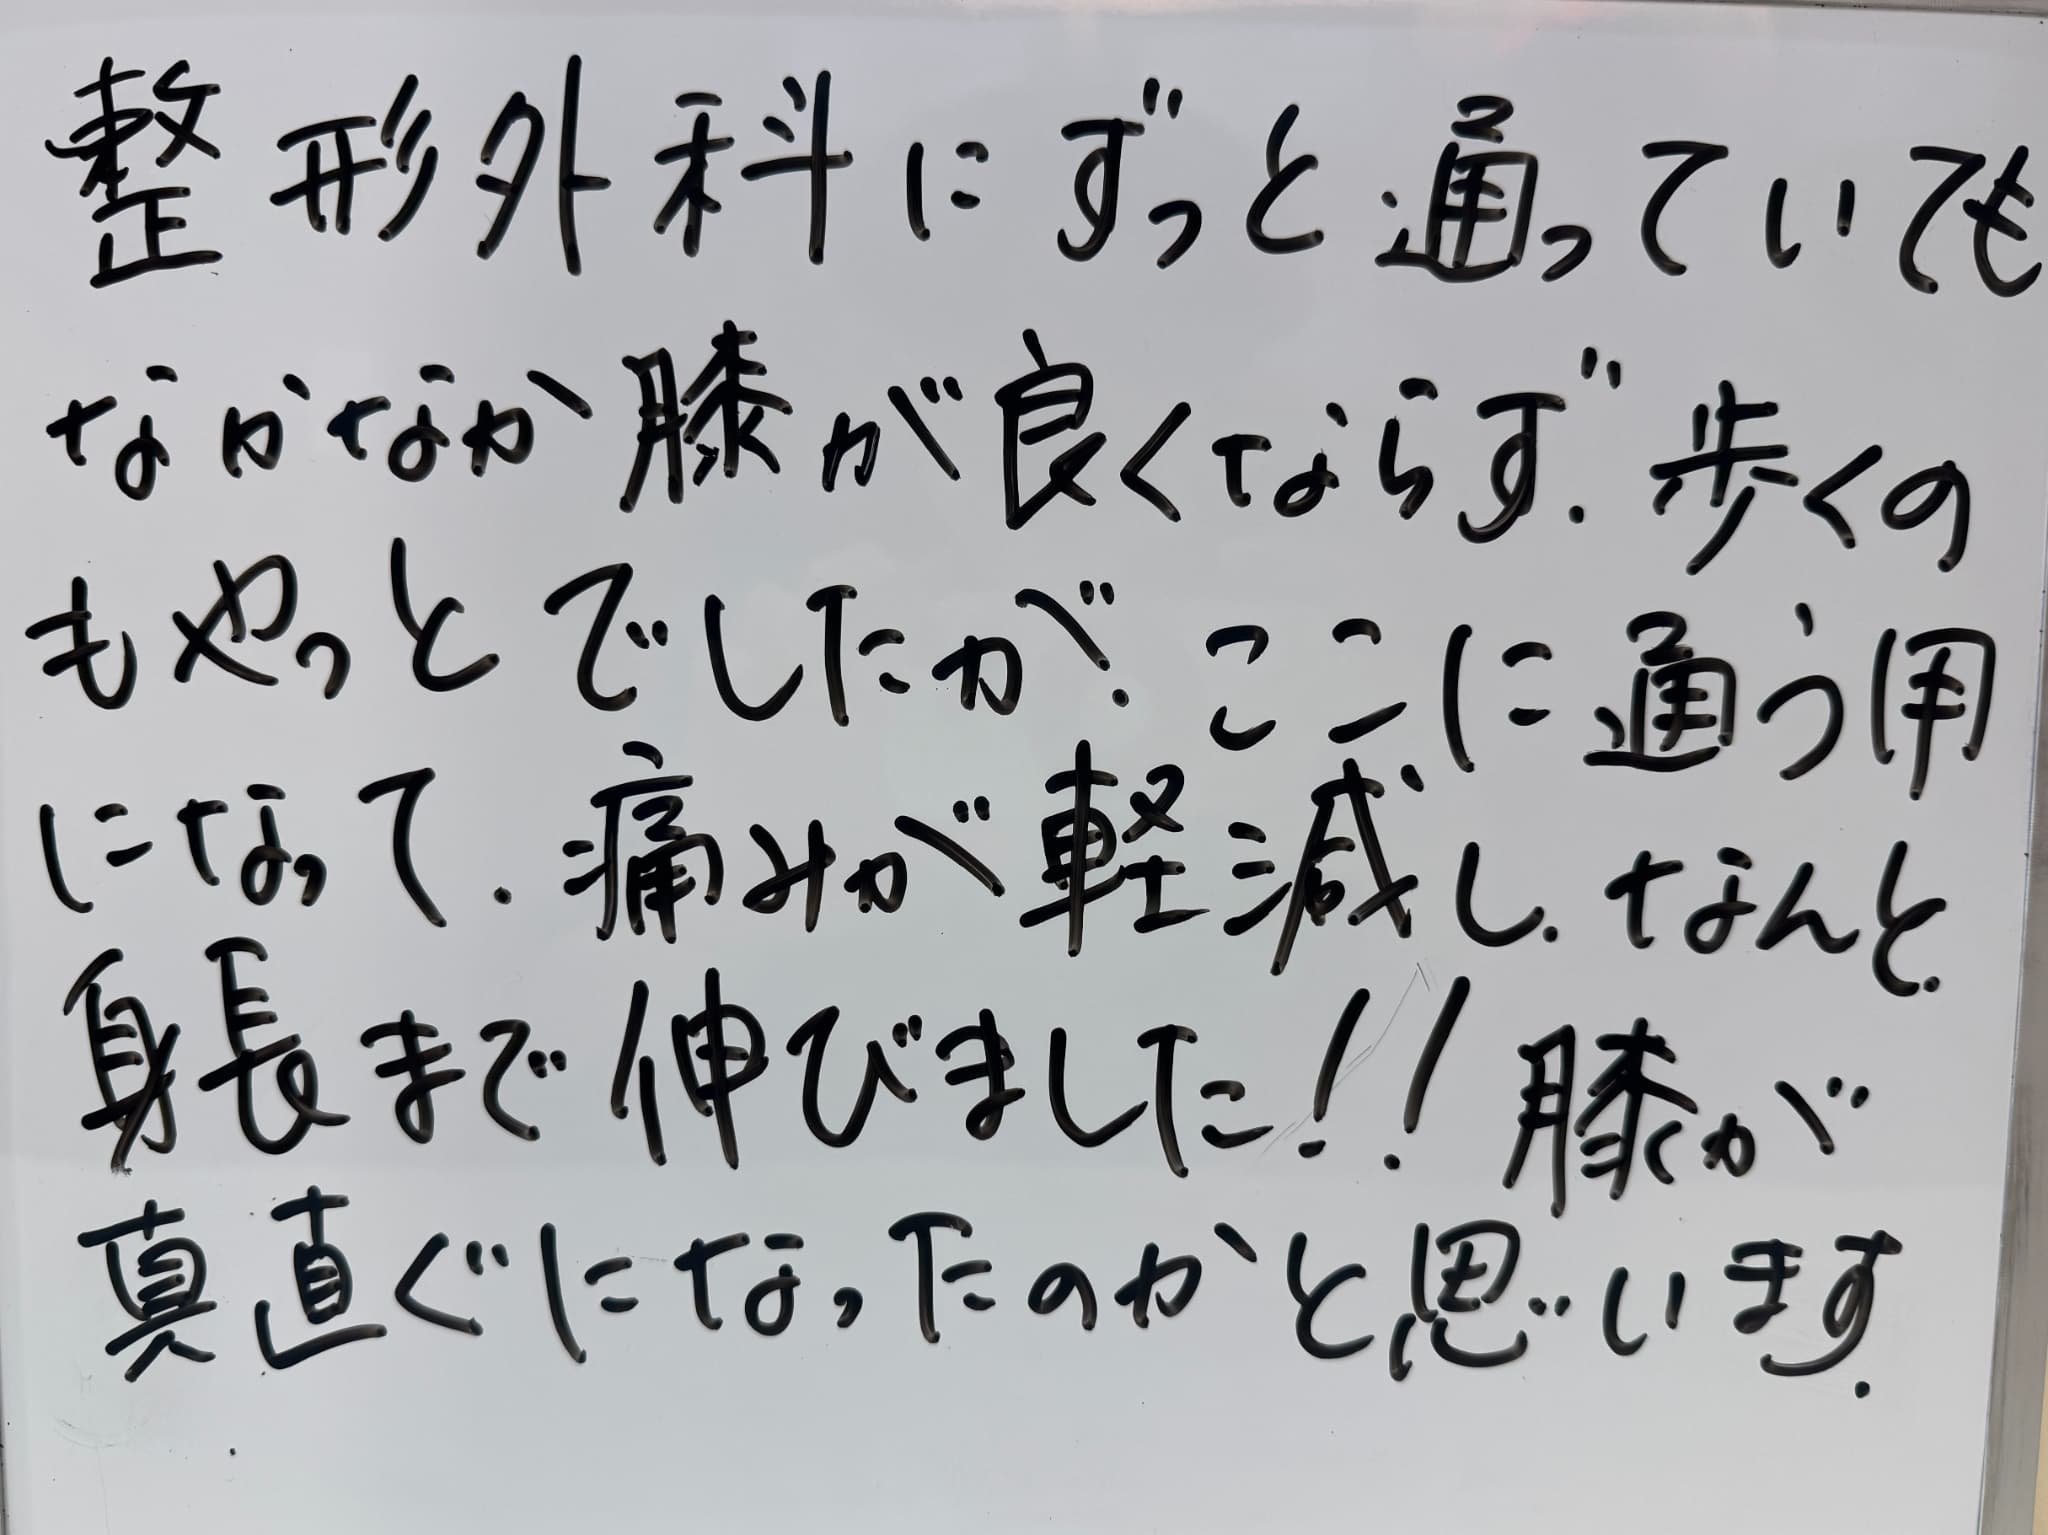 整形外科にずっと通っていても
なかなか膝が良くならず.歩くの
もやっとでしたが.ここに通う用
になって.痛みが軽減し.なんと.
身長まで伸びました!!膝が
真直ぐになったのかと思います.